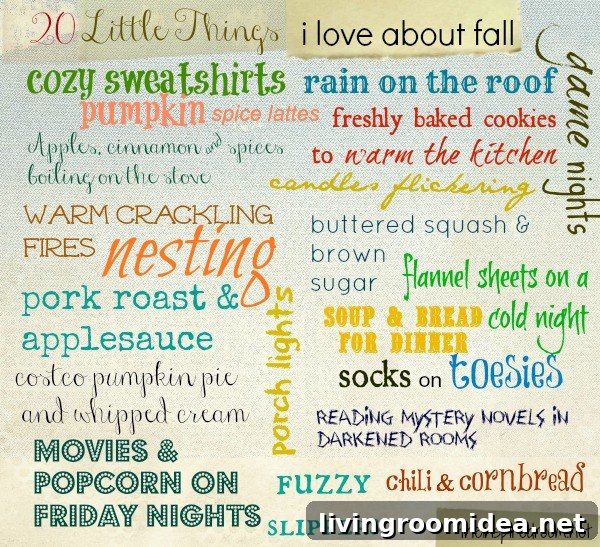 20 Little Things i love about fall
cozy sweatshirts
pumpkin spice lattes
Apples, cinnamon & spices
boiling on the stove
WARM CRACKLING
FIRES
nesting
pork roast &
applesauce
costco pumpkin pie
and whipped cream
MOVIES &
POPCORN ON
FRIDAY NIGHTS
porch lights
rain on the roof
freshly baked cookies
to warm the kitchen
candles flickering
game nights
buttered squash &
brown
sugar
flannel sheets on a
cold night
SOUP & BREAD
FOR DINNER
socks on toesies
READING MYSTERY NOVELS IN
DARKENED ROOMS
FUZZY
chili & cornbread
livingroomidea.net